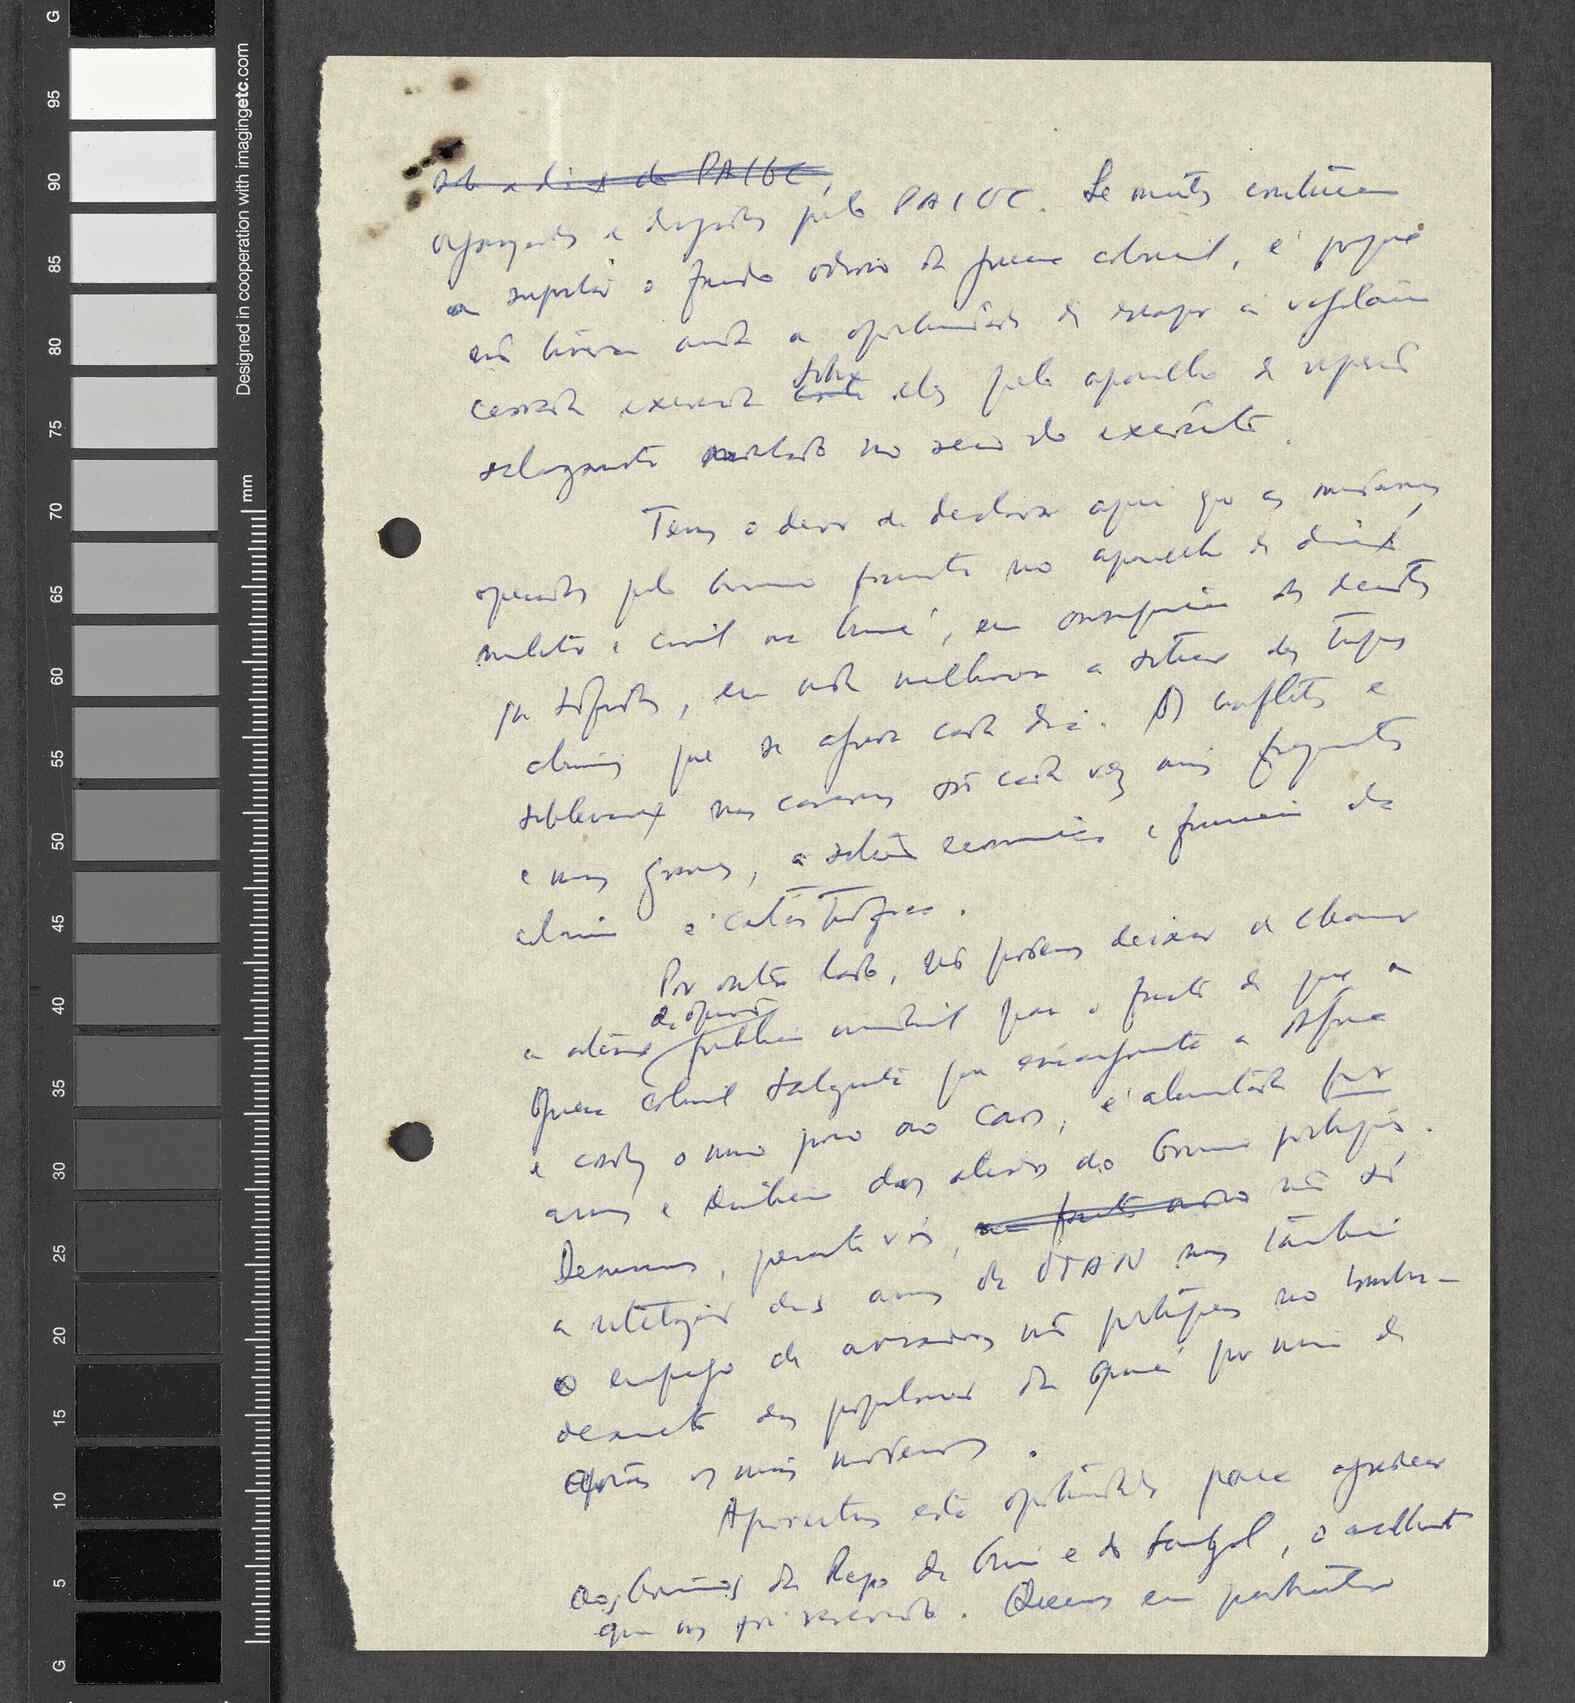 G
95
90
85
80
75
70
65
60
55
50
45
40
35
30
25
20
15
10
5
G
mm
Designed in cooperation with imagingetc.com
sob a dir. do PAIGC,
e dirigidos pelo PAIGC. Se muitos continuam
a suportar o fardo odioso da guerra colonial, é porque
não tiveram ainda a oportunidade de escapar à vigilância
cerrada exercida sobre eles pelo aparelho de repressão
salazarista no seio do exército.
Temos o dever de declarar aqui que as mudanças
operadas pelo Governo fascista no aparelho de
militar e civil na Guiné, em consequência das derrotas
sofridas, em nada melhoram a situação das tropas
coloniais que se agrava cada dia. Os conflitos e
nas casernas são cada vez mais frequentes
e mais graves, a situação económica e financeira da
colónia é catastrófica.
Por outro lado, não podemos deixar de chamar
a atenção da opinião pública mundial para o facto de que a
guerra colonial salazarista a África
e o nosso povo ao caos, é alimentada por
armas e dinheiro dos aliados do Governo português.
perante vós, não só
a utilização das armas da OTAN mas também
o emprego de não portugueses no bombar-
deamento das populações da Guiné por meio de
aviões os mais modernos.
Aproveitamos esta oportunidade para agradecer
aos Governos da Repa da Guiné e do Senegal, o acolhimento
que nos foi reservado. Queremos em particular